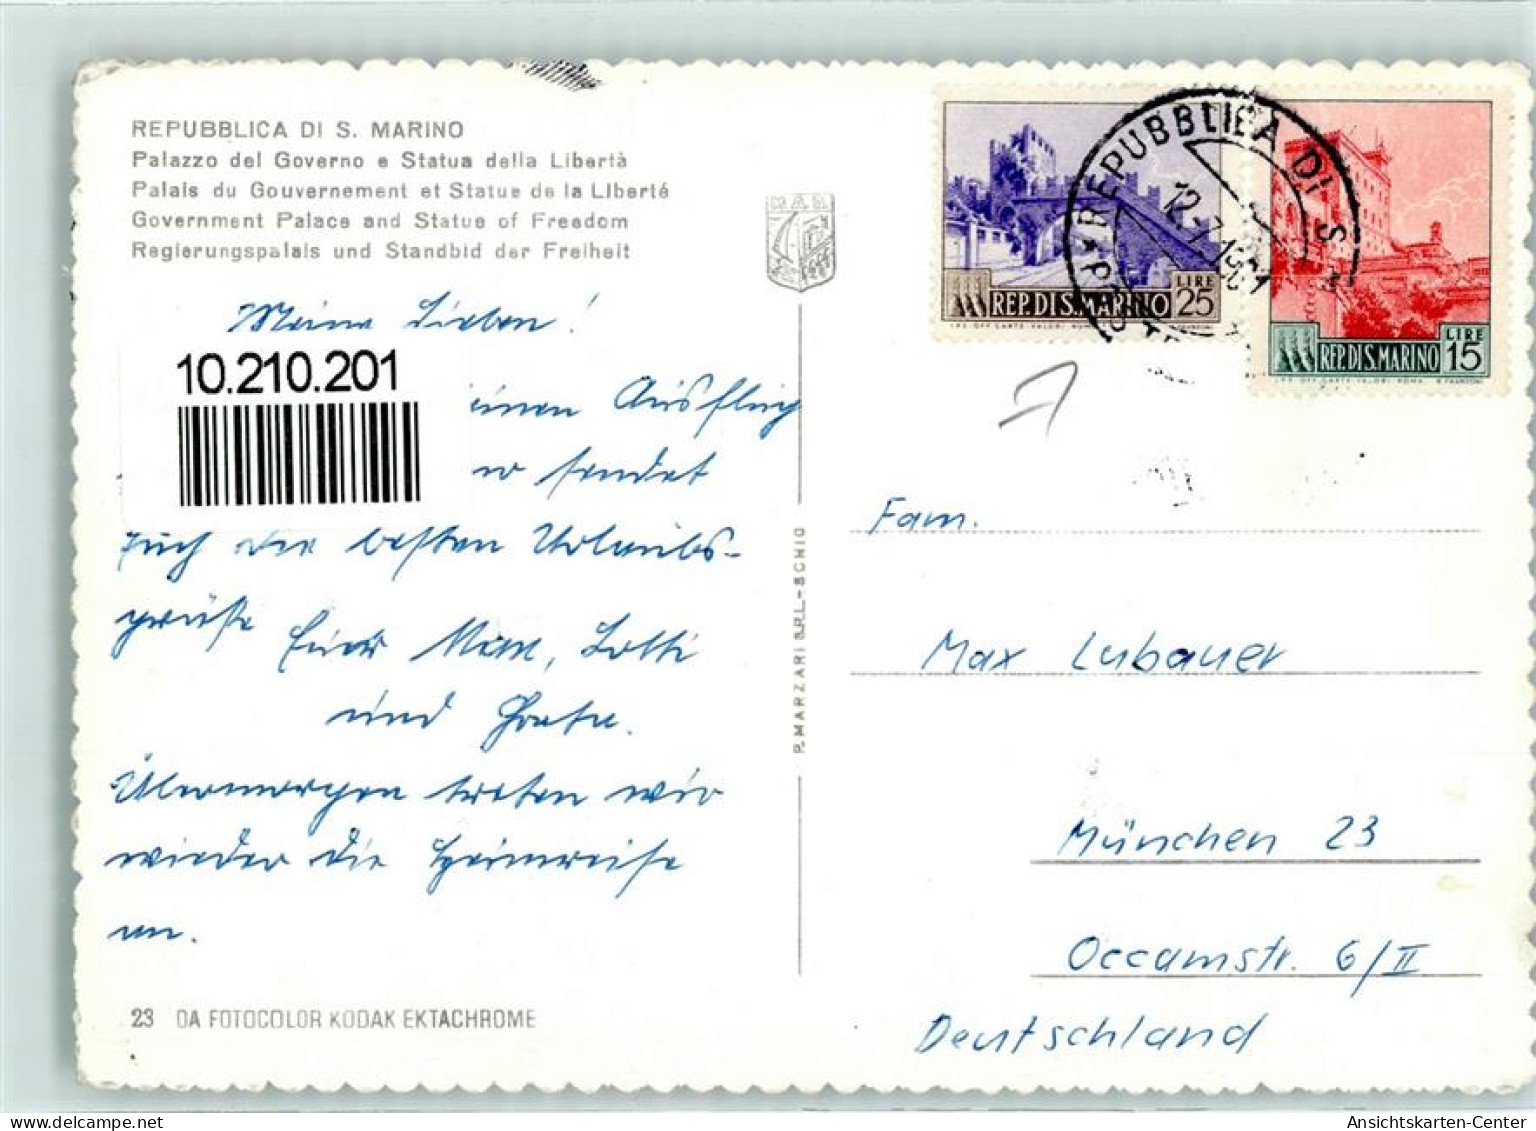 REPUBBLICA DI S. MARINO
Palazzo del Governo e Statua della Libertà
Palais du Gouvernement et Statue de la Liberté
Government Palace and Statue of Freedom
Regierungspalais und Standbid der Freiheit
Meine Lieben!
10.210.201
einen Ausflug
sendet
Euch die besten Urlaubs-
grüße
Eure Max, Lotti
und
Übermorgen treten wir
wieder die Heimreise
an.
23 DA FOTOCOLOR KODAK EKTACHROME
P. MARZARI S.R.L. - SCHIO
REPUBBLICA DI S.
12.-7.19
LIRE
REP. DI S. MARINO 25
LIRE
REP. DI S. MARINO 15
Fam.
Max Lubauer
München 23
Occamstr. 6/II
Deutschland
Ansichtskarten-Center